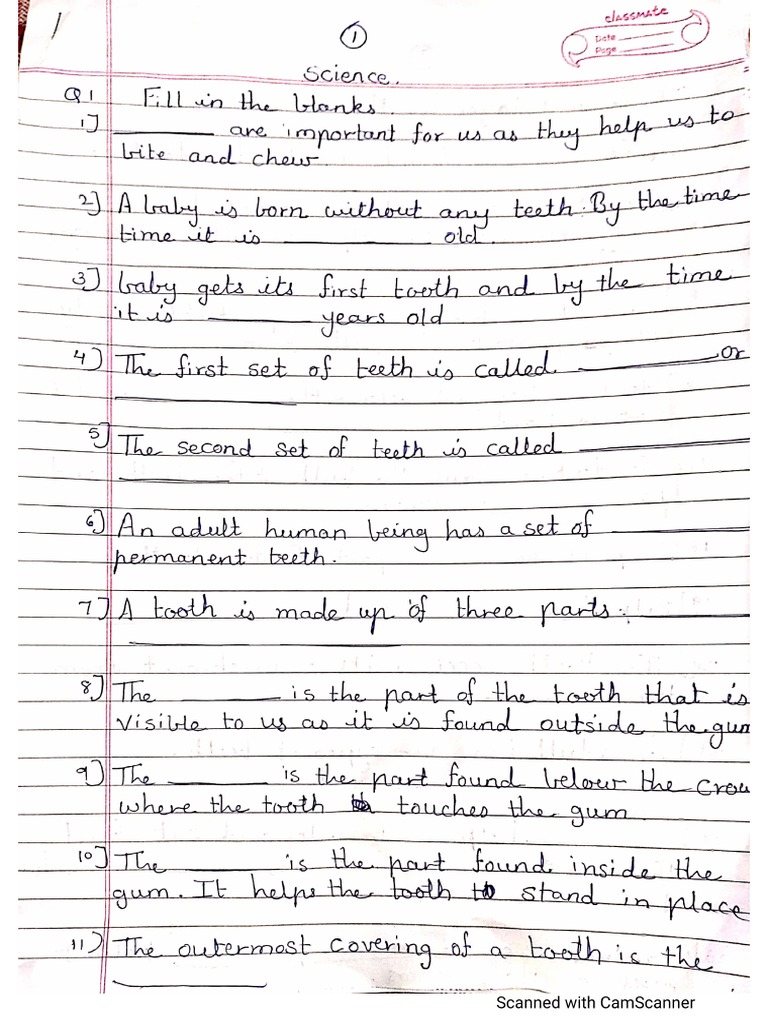 1
①
classmate
Date
Page
Science.
Q1 Fill in the blanks.
1] ________ are important for us as they help us to
bite and chew.
2] A baby is born without any teeth. By the time
time it is ____________ old.
3] baby gets its first tooth and by the time
it is ________ years old
4] The first set of teeth is called ____________ or
________________
5] The second set of teeth is called ______________
__________
6] An adult human being has a set of ____________
permanent teeth.
7] A tooth is made up of three parts: __________
______________________
8] The __________ is the part of the tooth that is
visible to us as it is found outside the gum
9] The ________ is the part found below the crow
where the tooth touches the gum
10] The ________ is the part found inside the
gum. It helps the tooth to stand in place
11) The outermost covering of a tooth is the
____________
Scanned with CamScanner